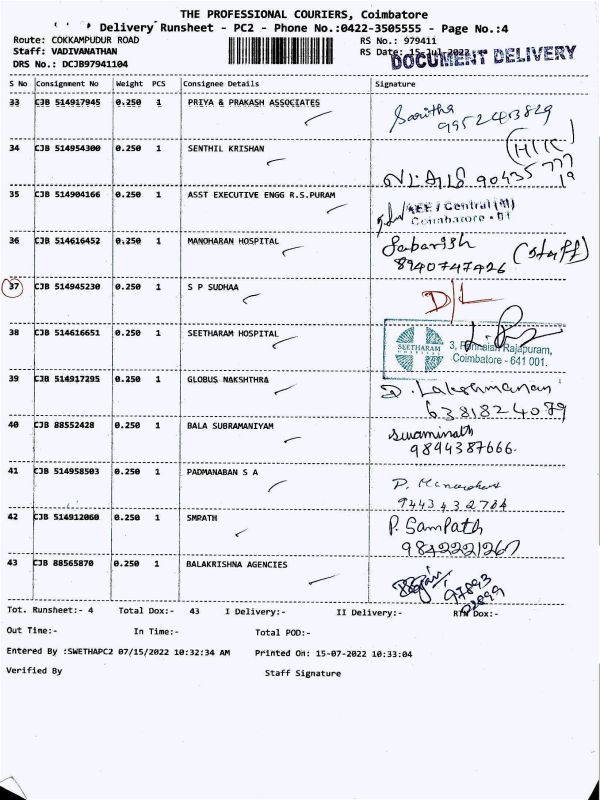 THE PROFESSIONAL COURIERS, Coimbatore
Delivery Runsheet - PC2 - Phone No.:0422-3505555 - Page No.:4
Route: COKKAMPUDUR ROAD RS No.: 979411
Staff: VADIVANATHAN RS Date: 15-Jul-2022
DOCUMENT DELIVERY
DRS No.: DCJB97941104
S No Consignment No Weight PCS Consignee Details Signature
33 CJB 514917945 0.250 1 PRIYA & PRAKASH ASSOCIATES Saritha
9952403829
34 CJB 514954300 0.250 1 SENTHIL KRISHAN
90435
35 CJB 514904166 0.250 1 ASST EXECUTIVE ENGG R.S.PURAM AEE / Central (M)
Coimbatore - 01
36 CJB 514616452 0.250 1 MANOHARAN HOSPITAL Sabarish (Staff)
8940747426
37 CJB 514945230 0.250 1 S P SUDHAA D/L
38 CJB 514616651 0.250 1 SEETHARAM HOSPITAL SEETHARAM HOSPITAL 3, Rajapuram,
Coimbatore - 641 001.
39 CJB 514917295 0.250 1 GLOBUS NAKSHTHRA D. Lakshmanan
6381824089
40 CJB 88552428 0.250 1 BALA SUBRAMANIYAM Swaminath
9894387666.
41 CJB 514958503 0.250 1 PADMANABAN S A P.
9443432784
42 CJB 514912060 0.250 1 SMPATH P. Sampath
9842221267
43 CJB 88565870 0.250 1 BALAKRISHNA AGENCIES
97893
02899
Tot. Runsheet:- 4 Total Dox:- 43 I Delivery:- II Delivery:- RTN Dox:-
Out Time:- In Time:- Total POD:-
Entered By :SWETHAPC2 07/15/2022 10:32:34 AM Printed On: 15-07-2022 10:33:04
Verified By Staff Signature